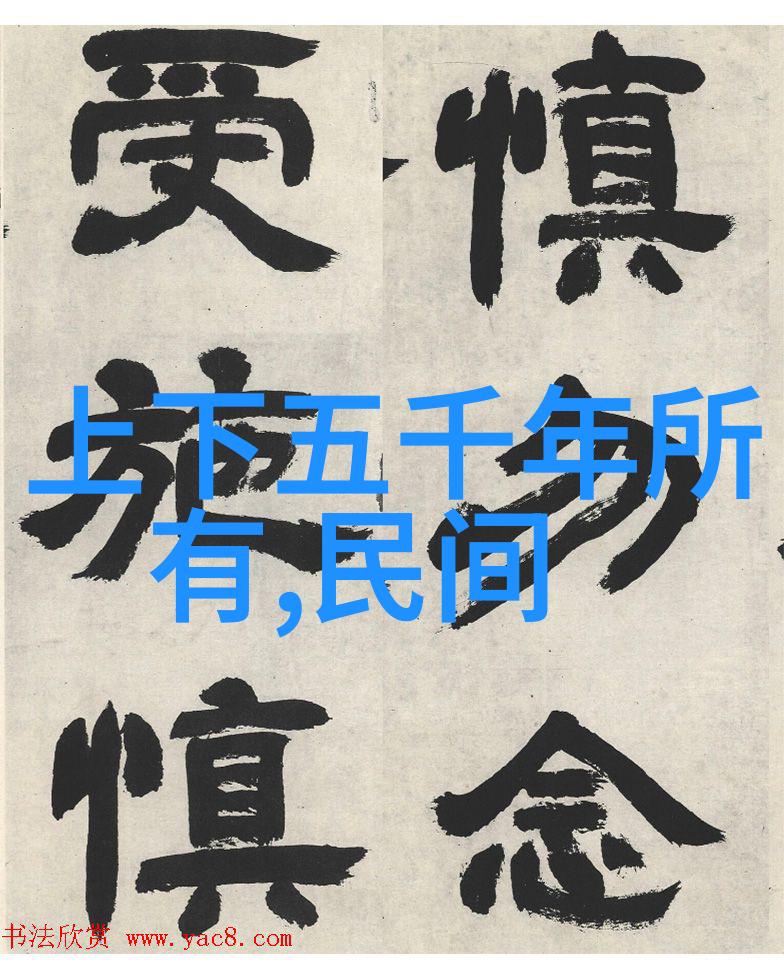 慎勿念
受施慎
上下五千年所
有,民间
书法欣赏 www.yac8.com